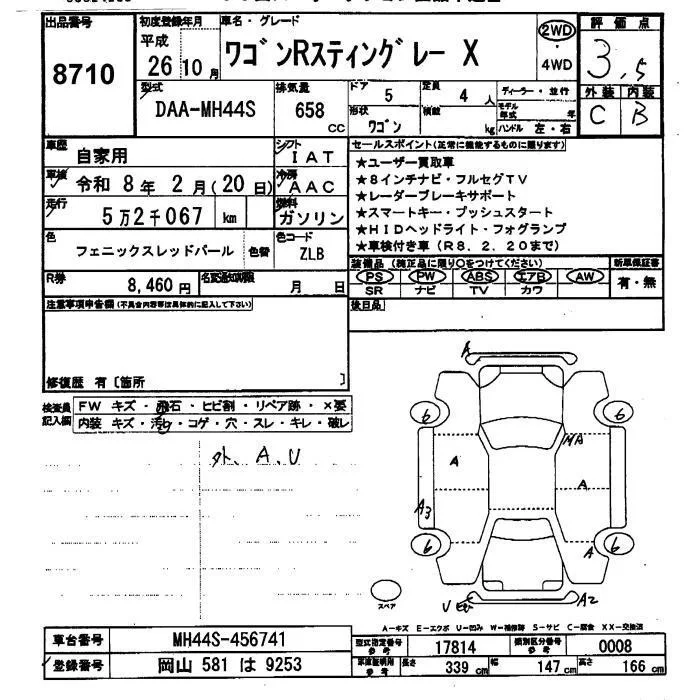 出品番号
8710
初度登録年月
平成
26年10月
車名・グレード
ワゴンRスティングレー X
2WD
・
4WD
評価点
3.5
外装 内装
C B
型式
DAA-MH44S
排気量
658
cc
ドア
5
定員
4人
形状
ワゴン
積載
kg
ディーラー・並行
モデル年式 年
ハンドル 左・右
車歴
自家用
シフト
IAT
車検
令和 8年 2月(20日)
冷房
AAC
走行
5万2千067 km
燃料
ガソリン
色
フェニックスレッドパール
色替
色コード
ZLB
R券
8,460円
名変通知期限
月 日
セールスポイント(正常に機能するものに限ります)
★ユーザー買取車
★8インチナビ・フルセグTV
★レーダーブレーキサポート
★スマートキー・プッシュスタート
★HIDヘッドライト・フォグランプ
★車検付き車(R8.2.20まで)
装備品(純正品に限り○をつけてください)
PS PW ABS エアB AW
SR ナビ TV カワ
新車保証書
有・無
注意事項申告欄(不具合内容等は具体的に記入して下さい)
後日品
修復歴 有〔箇所 〕
検査員
記入欄
FW キズ・飛石・ヒビ割・リペア跡・×要
内装 キズ・汚れ・コゲ・穴・スレ・キレ・破レ
外、A、U
A
6
6
MA
A
A
A3
6
A
6
A2
スペア
A－キズ E－エクボ U－凹ミ W－補修跡 S－サビ C－腐食 XX－交換済
車台番号
MH44S-456741
登録番号
岡山 581 は 9253
型式指定番号
参考
17814
類別区分番号
参考
0008
車庫証明用
参考
長さ
339 cm
幅
147 cm
高さ
166 cm